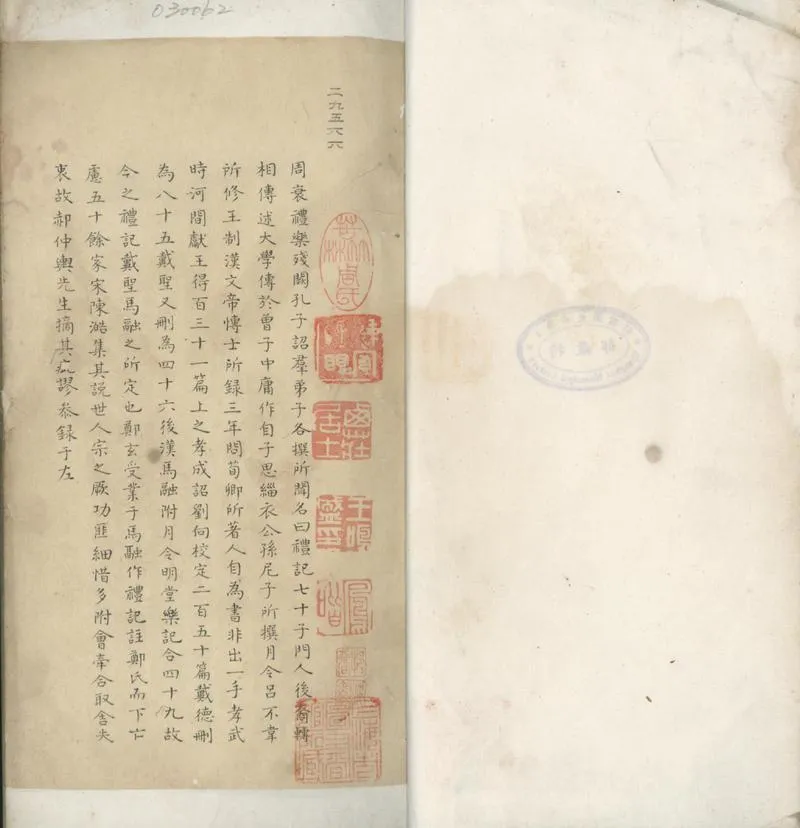 030062
二九五六六
周衰禮樂殘闕孔子詔羣弟子各撰所聞名曰禮記七十子門人後裔轉
相傳述大學傳於曾子中庸作自子思緇衣公孫尼子所撰月令呂不韋
所修王制漢文帝博士所録三年問荀卿所著人自為書非出一手孝武
時河間獻王得百三十一篇上之孝成詔劉向校定二百五十篇戴德刪
為八十五戴聖又刪為四十六後漢馬融附月令明堂樂記合四十九故
今之禮記戴聖馬融之所定也鄭玄受業于馬融作禮記註鄭氏而下亡
慮五十餘家宋陳澔集其説世人宗之厥功匪細惜多附會牽合取舍失
衷故郝仲輿先生摘其疵謬叅録于左
居士